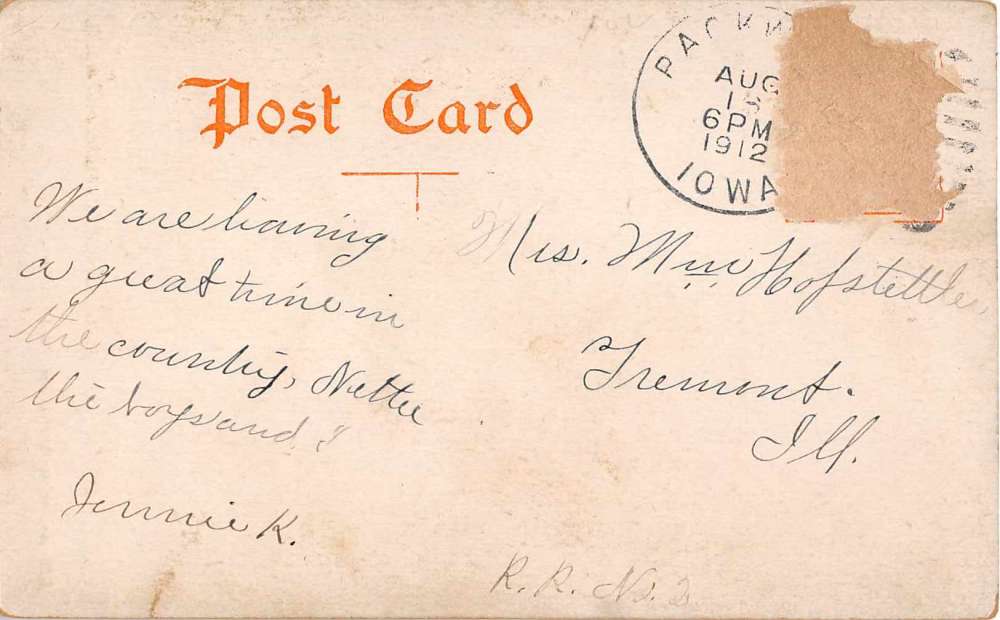 Post Card
PACKW
AUG
6PM
1912
IOWA
We are having
a great time in
the country, Nettie
the boys and I
Jennie K.
Mrs. Wm Hofstettler
Tremont.
Ill.
R. R. No. 2